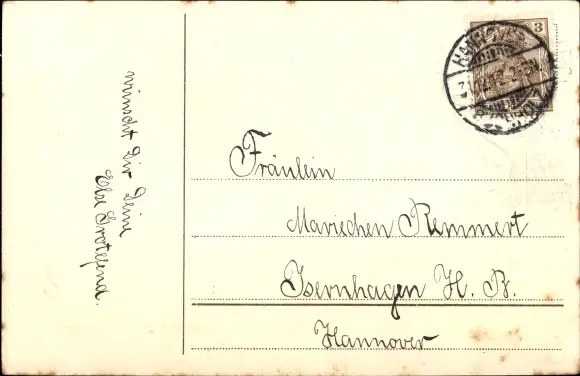 wünscht Dir Deine
Else Grotefend.
3
HANNOVER
Fräulein
Mariechen Remmert
Isernhagen H. B.
Hannover